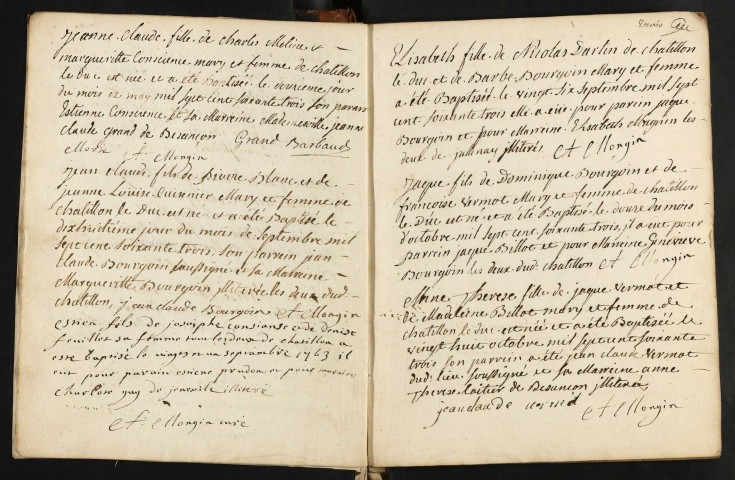 Jeanne Claude fille de charles Meline et
margueritte Conscience mary et femme de chatillon
le duc est née et a été Baptisée le douzieme jour
du mois de may mil sept cent soixante trois son parain
Estienne Conscience et sa Marraine Mademoiselle jeanne
claude Grand de Besançon Grand Barbaud
Mongin
Jean claude fils de Pierre Blanc et de
jeanne Louise Cuisinier Mary et femme de
chatillon le Duc est né et a été Baptisé le
dixhuitieme jour du mois de septembre mil
sept cent soixante trois, son parrein jean
claude Bourgoin soussigné et sa Marreine
Margueritte Bourgoin illiterée les deux dud.
chatillon, Jean claude Bourgoin Mongin
fils de josephe et de denise
sa femme de chatillon a
esté baptisé le vingt et un septambre 1763 il
eut pour parain estiene et pour mareine
illiteré
Mongin curé
Elisabeth fille de Nicolas Partin de chatillon
le duc et de Barbe Bourgoin Mary et femme
a été Baptisée le vingt six septembre mil sept
cent soixante trois elle a eu pour parein jaque
Bourgoin et pour Marreine Elisabeth Magnin les
deux de illiterés Mongin
Jaque fils de Dominique Bourgoin et de
francoise vermot Mary et femme de chatillon
le Duc est né et a été Baptisé le douze du mois
d'octobre mil sept cent soixante trois, il a eut pour
parrein jaque Billot et pour Marreine Genevieve
Bourgoin les deux dud. chatillon Mongin
Anne Therese fille de jaque vermot et
de Madeleine Billot mary et femme de
chatillon le duc est née et a été Baptisée le
vingt huit octobre mil sept cent soixante
trois son parrein a été jean claude vermot
dud. lieu soussigné et sa Marreine anne
Therese de Besançon illiterée
jean claude vermot Mongin